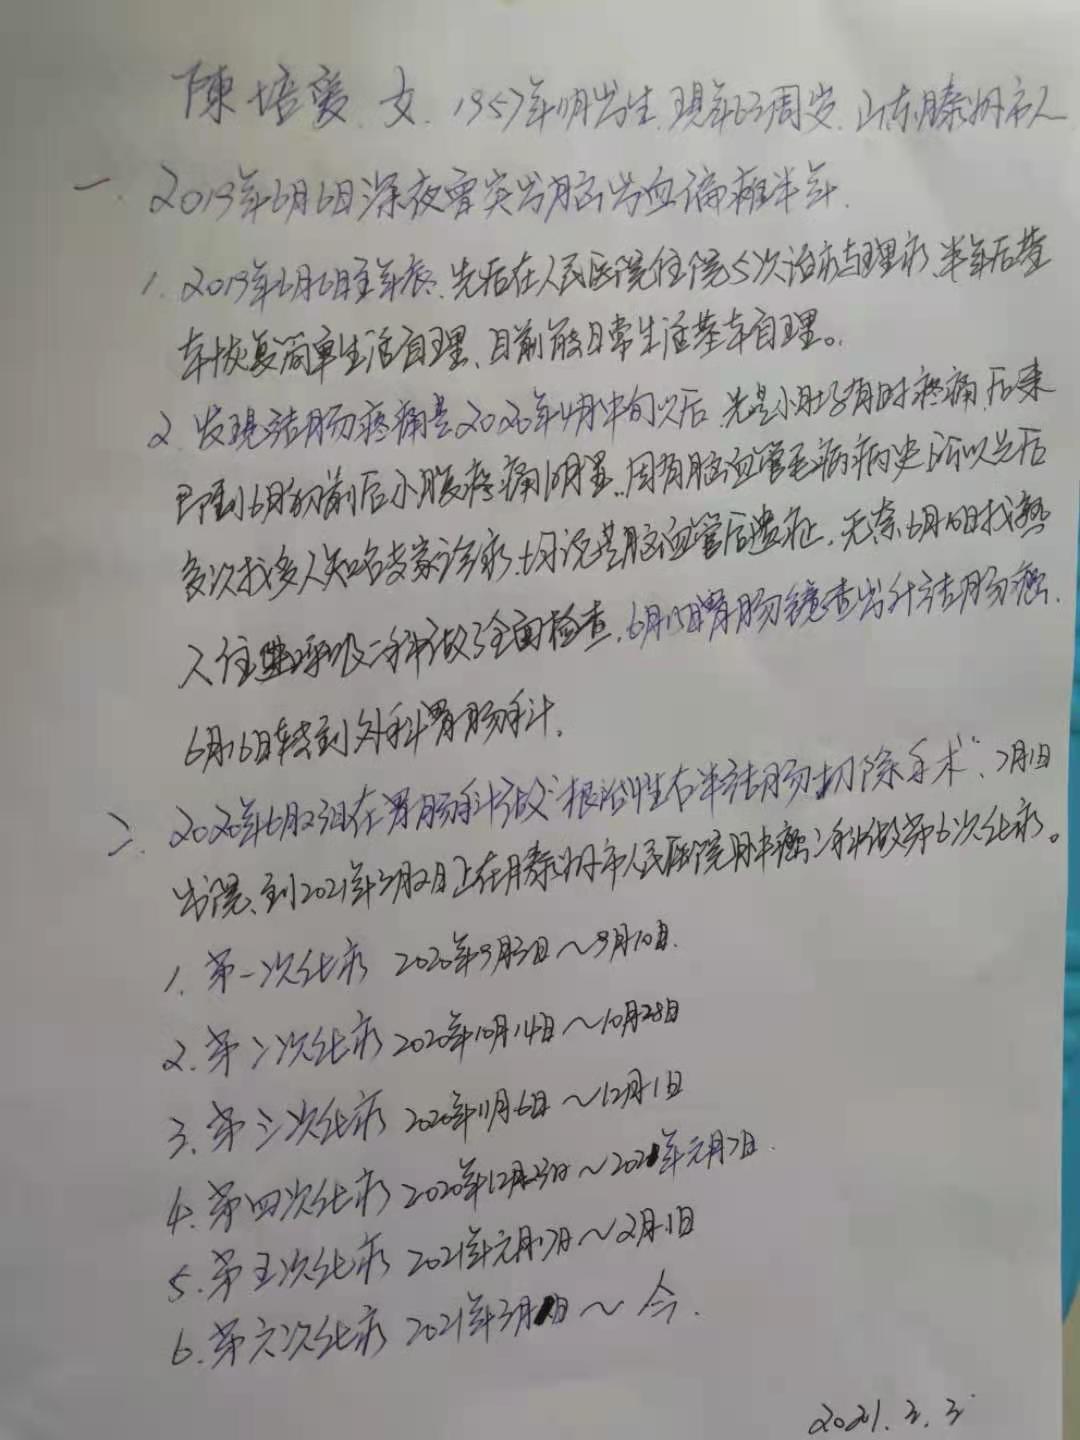 陳培爱、女、1957年11月出生、現年63周岁、山东滕州市人
一、2019年6月6日深夜曾突发脑出血偏瘫半年.
1. 2019年6月6日至年底、先后在人民医院住院5次治疗与理疗、半年后基
本恢复简单生活自理、目前能日常生活基本自理。
2. 发现结肠疼痛是2020年4月中旬以后、先是小肚子有时疼痛、后来
已到6月初前后小腹疼痛明显、因有脑血管毛病病史、所以先后
多次找多人知名专家诊疗、均说是脑血管后遗症、无奈6月10日找熟
入住呼吸二科做了全面检查、6月15日胃肠镜查出升结肠癌、
6月16日转到外科胃肠科.
二、2020年6月23日在胃肠科做“根治性右半结肠切除手术”、7月1日
出院、到2021年3月2日上在滕州市人民医院肿瘤二科做第6次化疗。
1. 第一次化疗 2020年9月3日～9月10日.
2. 第二次化疗 2020年10月14日～10月28日
3. 第三次化疗 2020年11月6日～12月1日
4. 第四次化疗 2020年12月23日～2021年元月7日.
5. 第五次化疗 2021年元月17日～2月1日
6. 第六次化疗 2021年3月1日～今.
2021.3.3